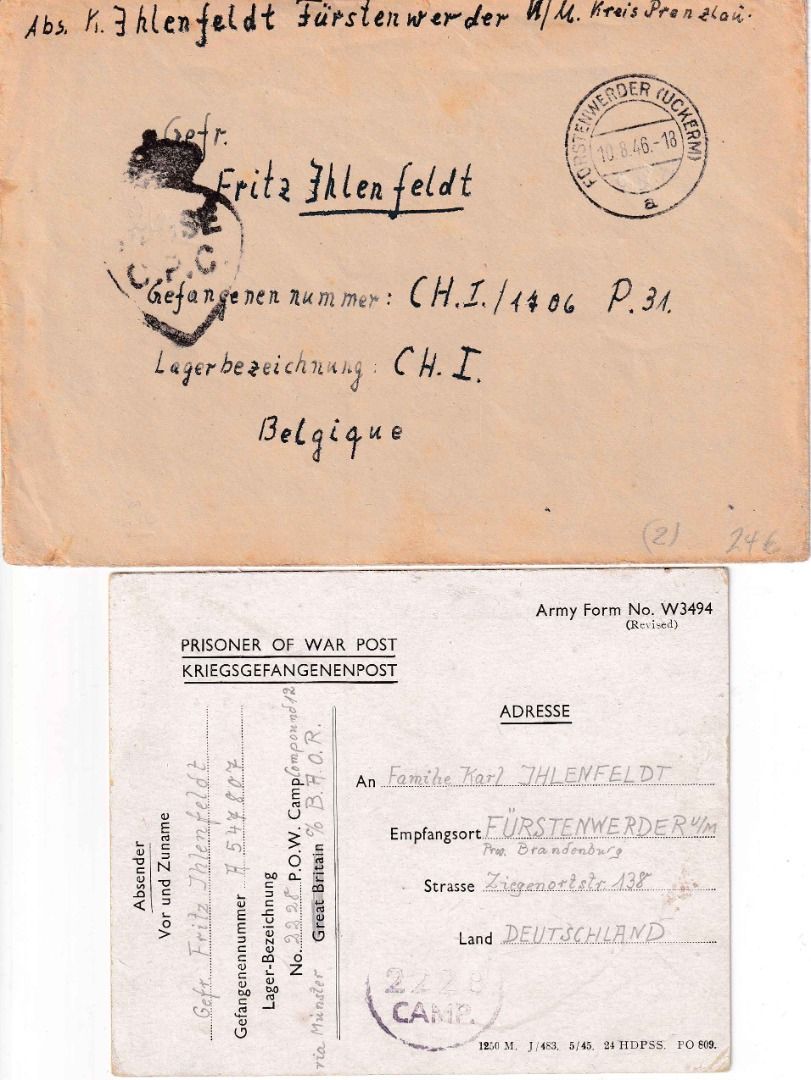 Abs. K. Ihlenfeldt Fürstenwerder U/M. Kreis Prenzlau.
FÜRSTENWERDER (UCKERM)
10.8.46.-18
a
Gefr.
Fritz Ihlenfeldt
C.P.C.
Gefangenennummer: CH.I./1706 P.31.
Lagerbezeichnung: CH.I.
Belgique
(2) 24€
Army Form No. W3494
(Revised)
PRISONER OF WAR POST
KRIEGSGEFANGENENPOST
ADRESSE
An Familie Karl IHLENFELDT
Empfangsort FÜRSTENWERDER U/M
Prov. Brandenburg
Strasse Ziegenortstr. 138
Land DEUTSCHLAND
Absender
Vor und Zuname
Gefr. Fritz Ihlenfeldt
Gefangenennummer A 547807
Lager-Bezeichnung
No. 2228 P.O.W. Camp Compound 12
Great Britain c/o B.A.O.R.
via Münster
2228
CAMP.
1250 M. J/483. 5/45. 24 HDPSS. PO 809.